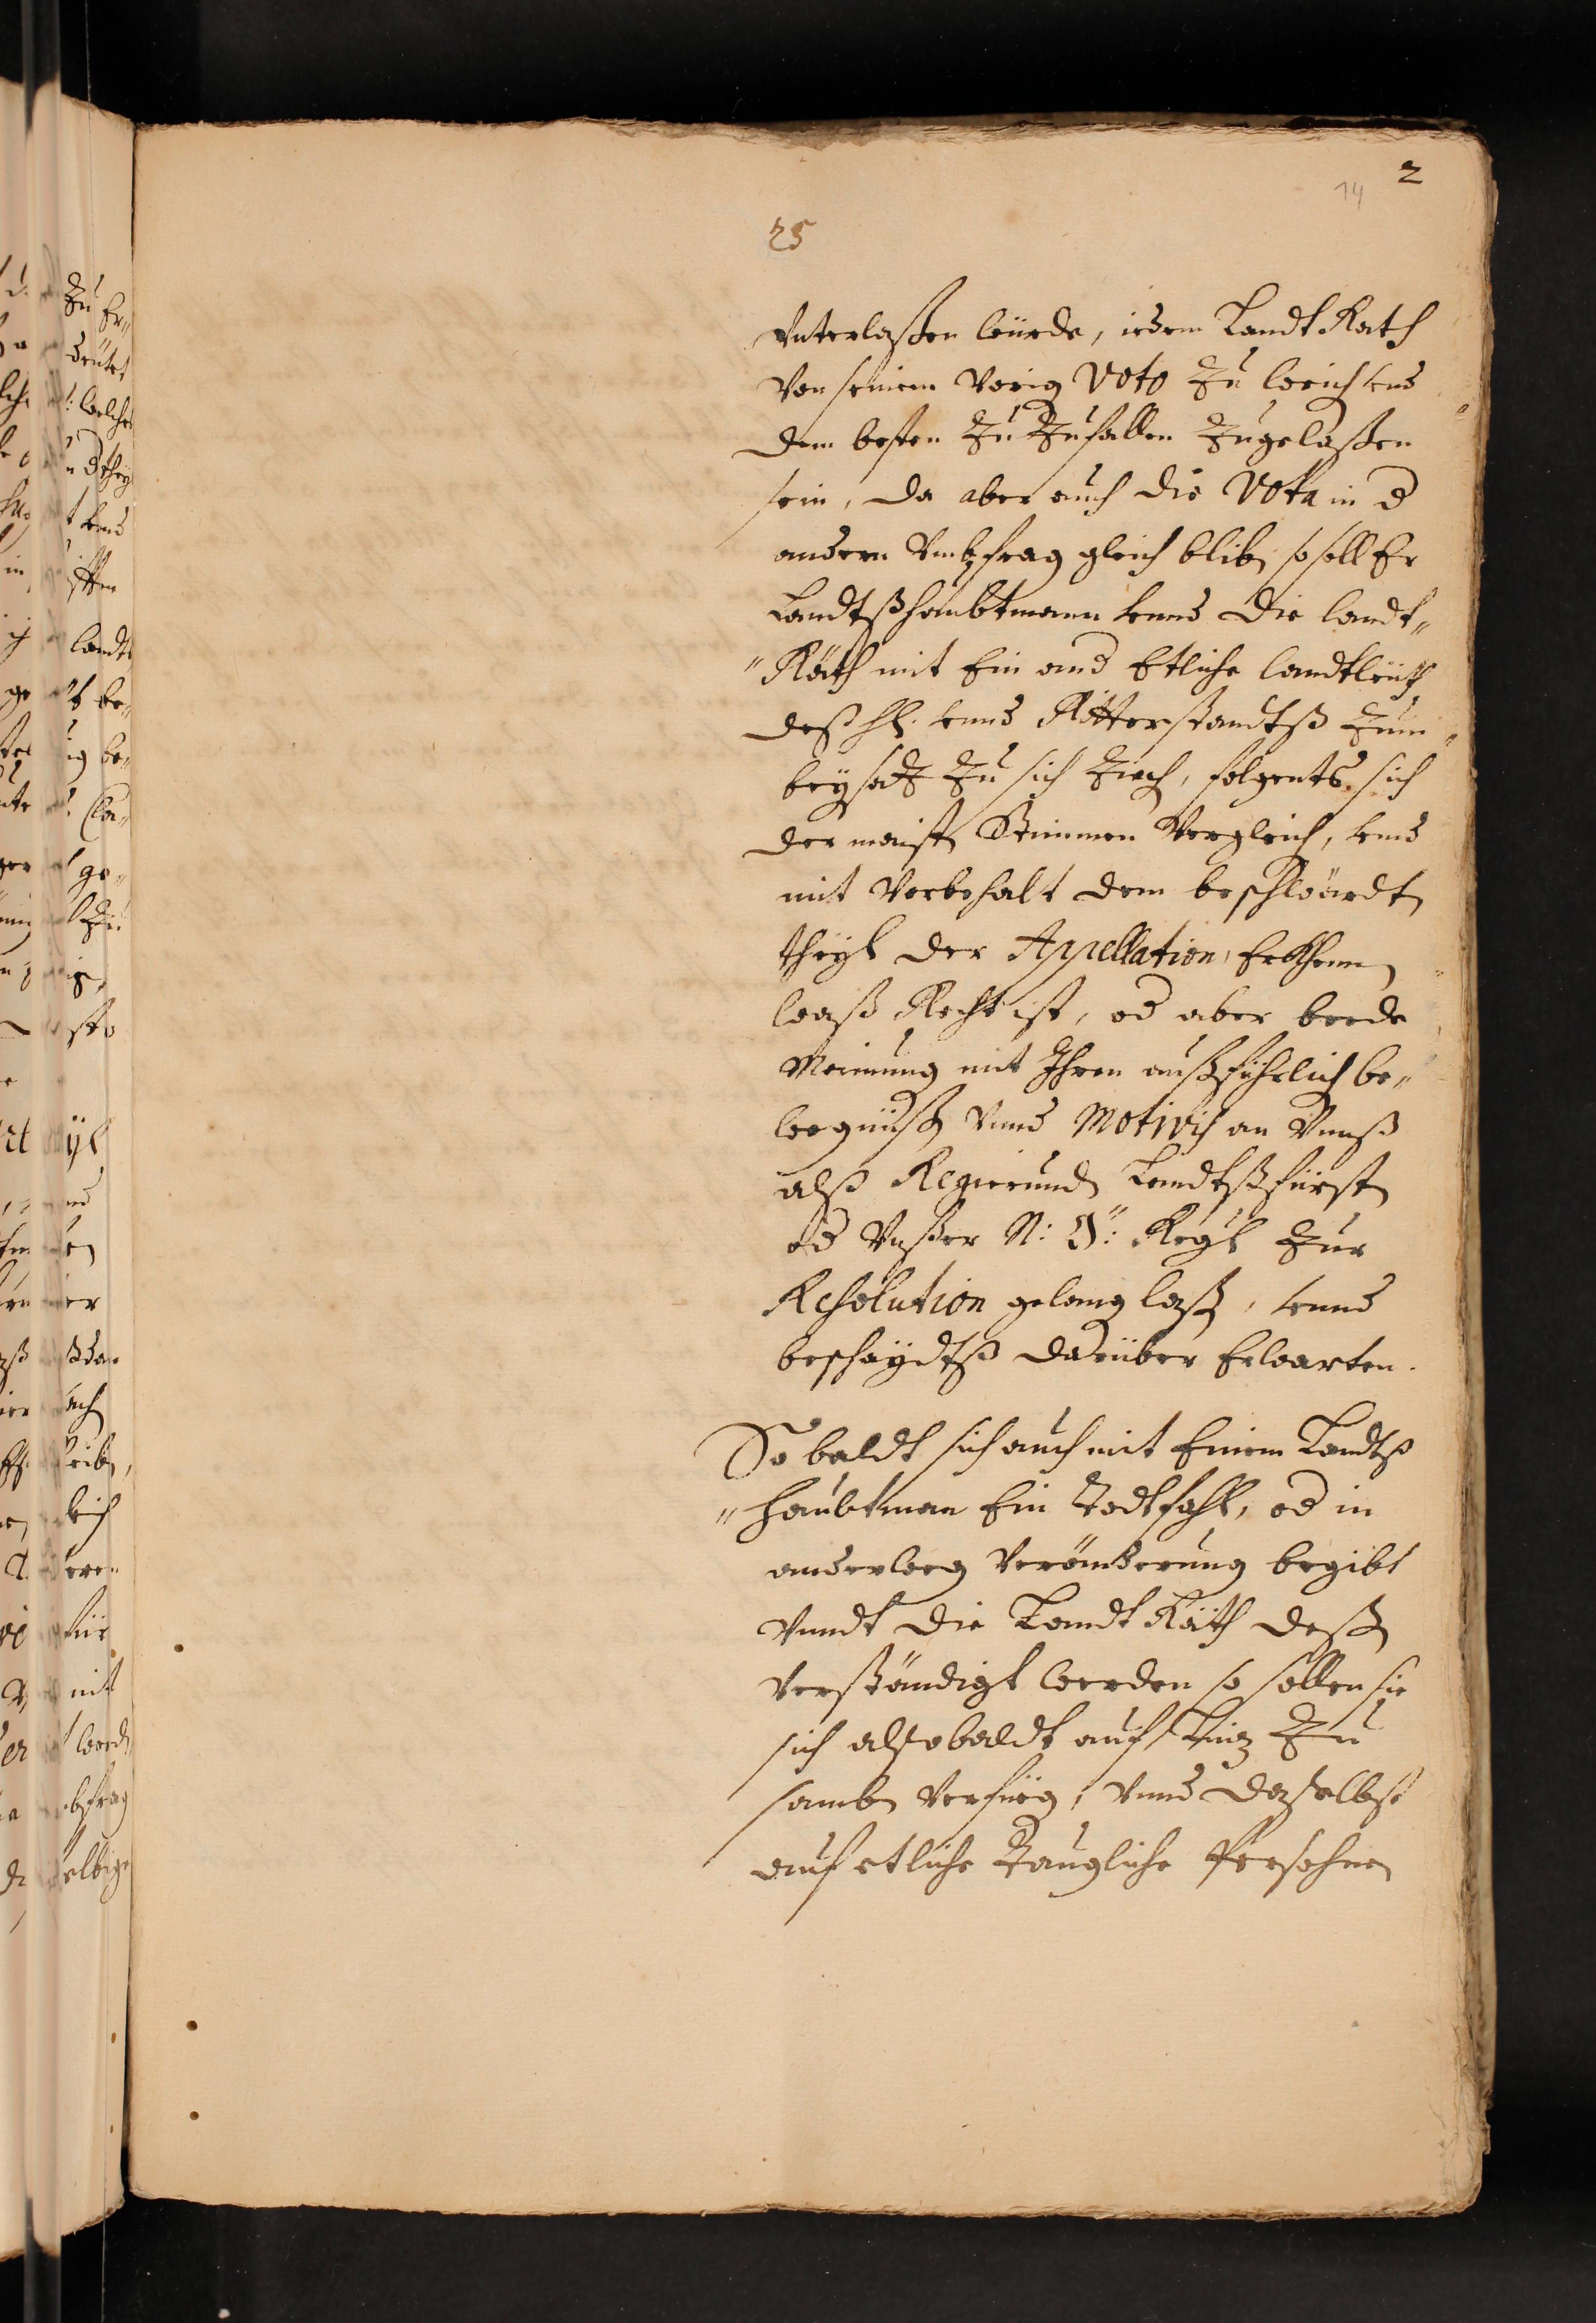 2
14
25
Vnterlaßen würde, iedem Landt Rath
Von seinem Vorig Voto Zu weich vnd
dem besten Zu Zufallen Zugelaßen
sein, da aber auch die Vota in d
andern Vmbfrag gleich blib, so soll Er
Landtßhaubtmann vnnd die landt„
„Räth mit Ein and Etliche landtleüth
deß H. vnnd Ritterstandtß Zum
beysatz Zu sich Zieh, folgents sich
der maist Stimmen Vergleich, vnd
mit Vorbehalt dem beschwärdt
theyl der Appellation, Erkhenn
waß Recht ist, od aber beede
Meinung mit Ihren außführlich be„
wegnuß vnnd Motivis an Vnnß
alß Regierund Landtßfürst
od Vnßer N: Ö: Regl Zur
Resolution gelang laß, vnnd
beschaydtß darüber Erwarten.
So baldt sich auch mit Einem Landtß
„haubtman Ein Todtfahl, od in
anderweg Veränderung begibt
Vnndt die Landt Räth deß
Verständigt werden so sollen sie
sich alsobaldt auf Linz Zu
samb Verfüeg, vnnd daselbst
auf etliche Taugliche Persohnen